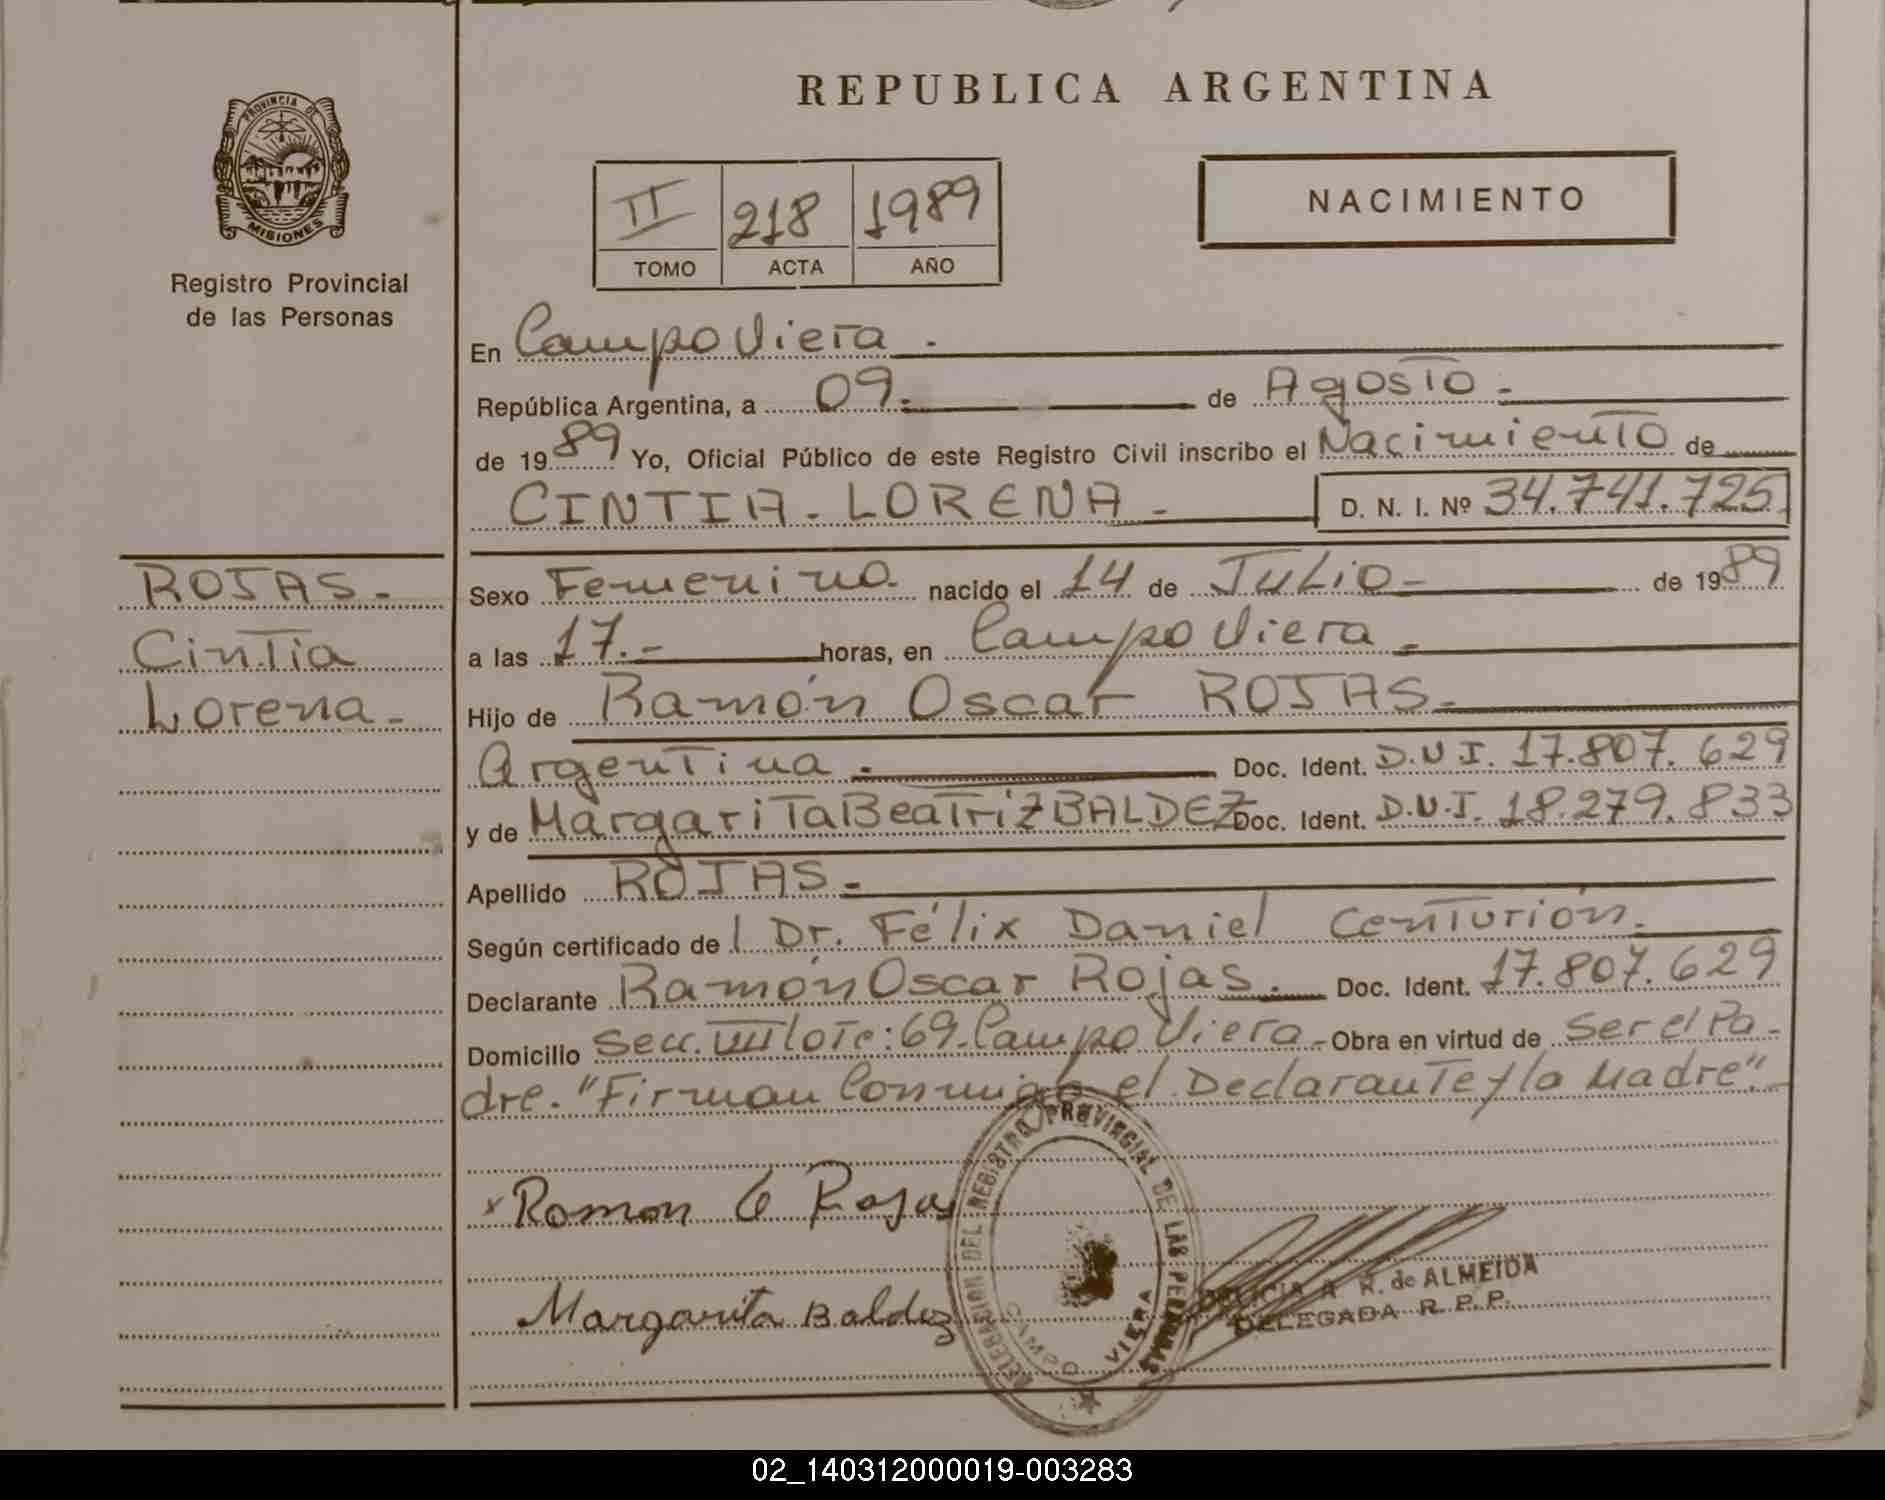 REPUBLICA ARGENTINA
PROVINCIA DE
MISIONES
Registro Provincial
de las Personas
II 218 1989
TOMO ACTA AÑO
NACIMIENTO
En Campo Viera.
República Argentina, a 09.- de Agosto.-
de 1989 Yo, Oficial Público de este Registro Civil inscribo el Nacimiento de
CINTIA-LORENA- D. N. I. Nº 34.741.725
ROJAS-
Cintia
Lorena-
Sexo Femenino- nacido el 14 de Julio- de 1989
a las 17.- horas, en Campo Viera-
Hijo de Ramón Oscar ROJAS-
Argentina- Doc. Ident. D.N.I. 17.807.629
y de Margarita Beatriz BALDEZ Doc. Ident. D.N.I. 18.279.833
Apellido ROJAS-
Según certificado de Dr. Félix Daniel Centurión.
Declarante Ramón Oscar Rojas. Doc. Ident. 17.807.629
Domicilio Secc. VIII lote: 69-Campo Viera- Obra en virtud de Ser el Pa-
dre. "Firman Conmigo el Declarante y la Madre".
Ramon O Rojas
Margarita Baldez
DELEGACION DEL REGISTRO PROVINCIAL DE LAS PERSONAS
CAMPO VIERA
R. de ALMEIDA
DELEGADA R. P. P.
02_140312000019-003283